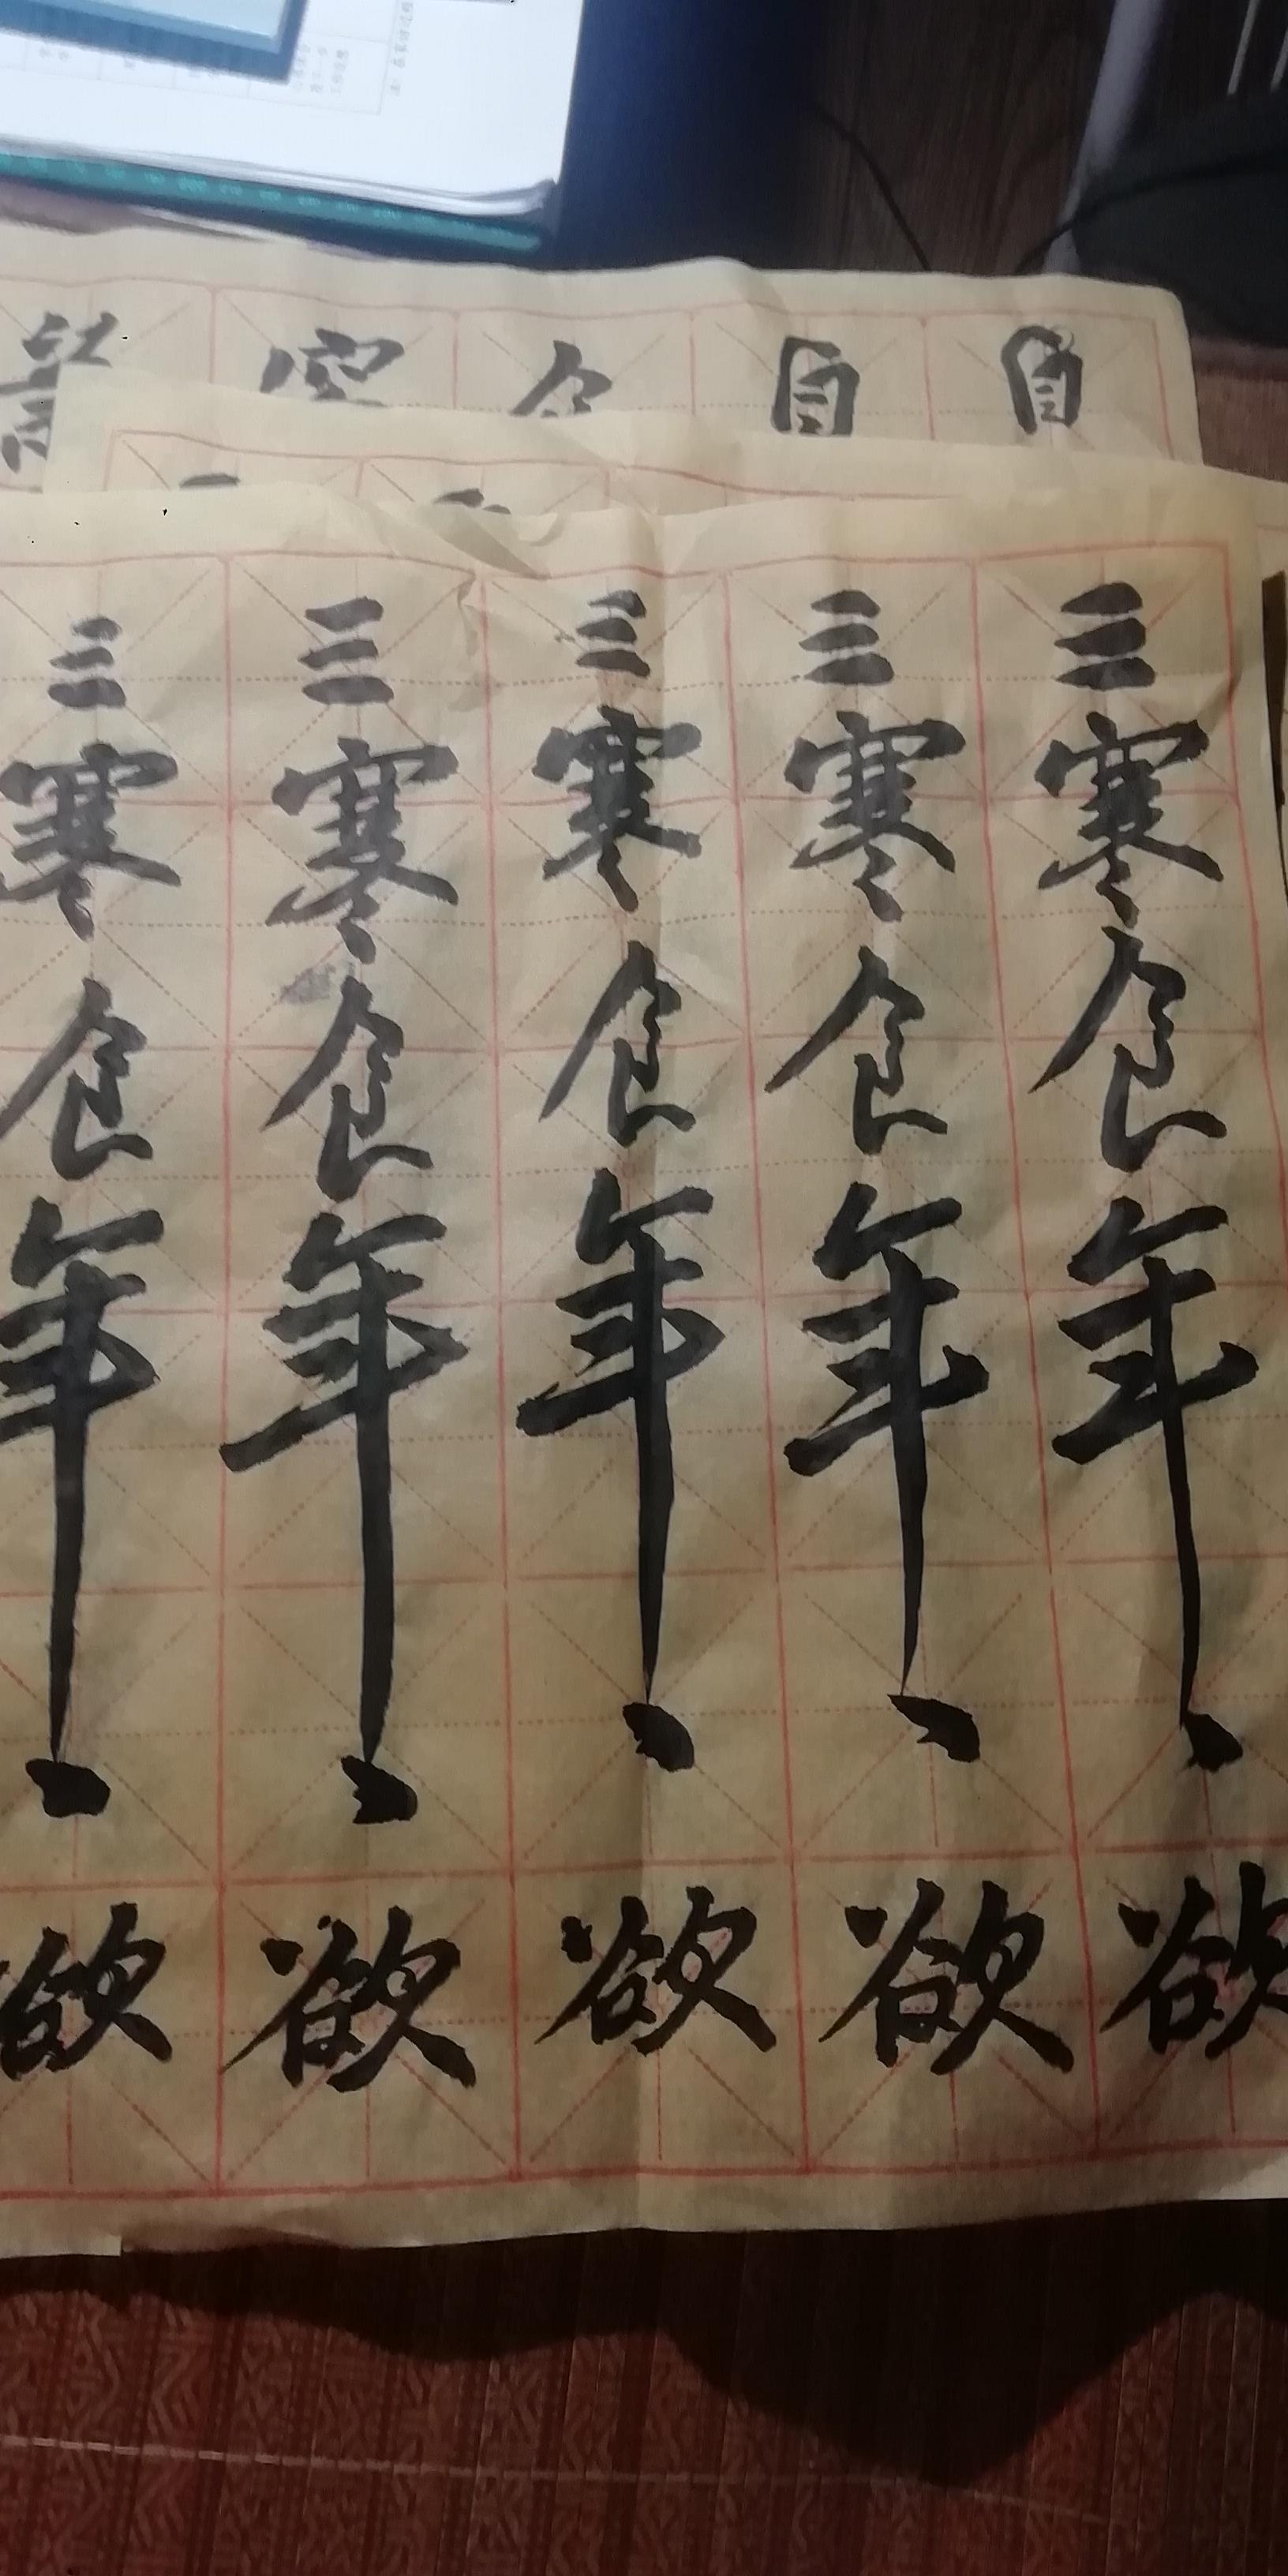 自
自
三寒食年々欲
三寒食年々欲
三寒食年々欲
三寒食年々欲
三寒食年々欲